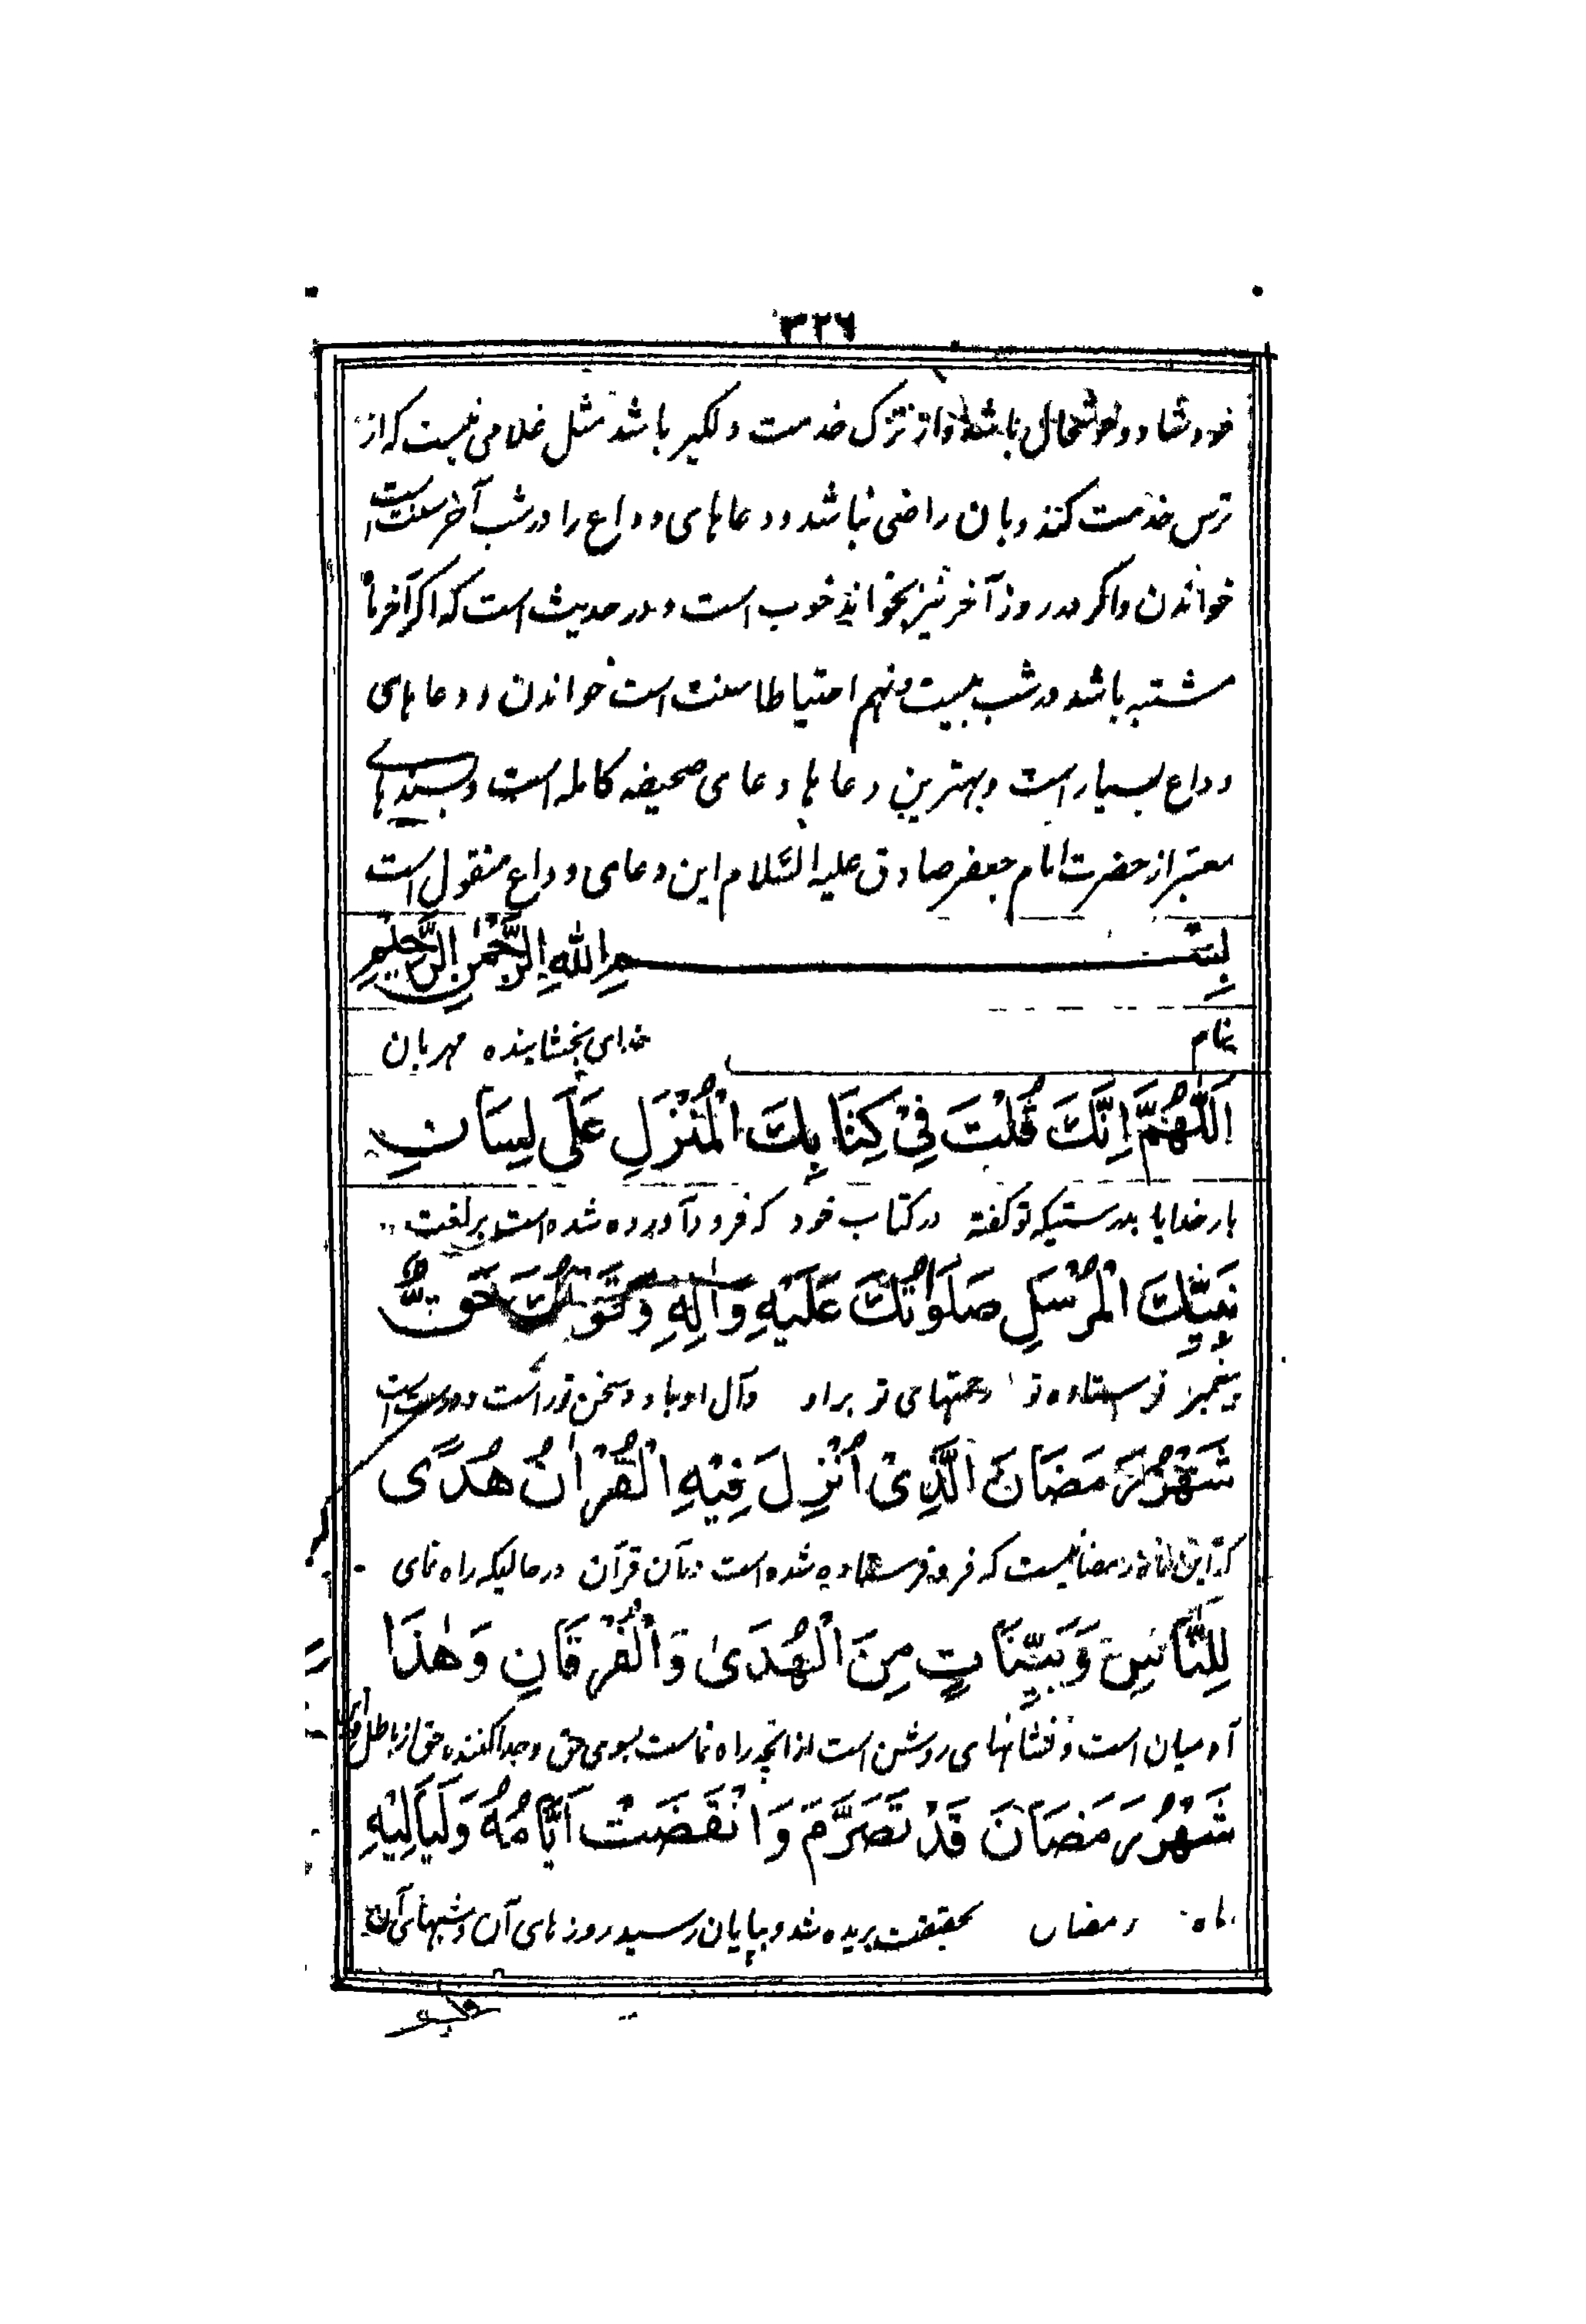 ۳۲۶
خود شاد و خوشحال باشد و از ترک خدمت دلگیر باشد مثل غلامی نیست که از
ترس خدمت کند و بان راضی نباشد و دعاهای وداع را در شب آخر سنت است
خواندن و اگر در روز آخر نیز بخواند خوب است و در حدیث است که اگر آخر ماه
مشتبه باشد در شب بیست و نهم احتیاطا سنت است خواندن و دعاهای
وداع بسیار است و بهترین دعاها دعای صحیفه کامله است و بسندهای
معتبر از حضرت امام جعفر صادق علیه السّلام این دعای وداع منقول است
بِسْمِ اللهِ الرَّحْمٰنِ الرَّحِيْمِ
بنام خدای بخشاینده مهربان
اَللّٰهُمَّ اِنَّكَ قُلْتَ فِيْ كِتَابِكَ الْمُنْزَلِ عَلَى لِسَانِ
بار خدایا بدرستیکه تو گفته در کتاب خود که فرود آورده شده است بر لغت
نَبِيِّكَ الْمُرْسَلِ صَلَوَاتُكَ عَلَيْهِ وَاٰلِهِ وَقَوْلُكَ حَقٌّ
پیغمبر فرستاده تو رحمتهای تو بر او وآل او باد و سخن تو راست و درست است
شَهْرُ رَمَضَانَ الَّذِيْ اُنْزِلَ فِيْهِ الْقُرْاٰنُ هُدًى
که این ماه رمضانیست که فرو فرستاده شده است در آن قرآن در حالیکه راه نمای
لِلنَّاسِ وَبَيِّنَاتٍ مِنَ الْهُدَىٰ وَالْفُرْقَانِ وَهٰذَا
آدمیان است و نشانهای روشن است از انچه راه نماست بسوی حق و جدا کننده حق از باطل و این
شَهْرُ رَمَضَانَ قَدْ تَصَرَّمَ وَانْقَضَتْ اَيَّامُهُ وَلَيَالِيْهِ
ماه رمضان بحقیقت بریده شد و بپایان رسید روزهای آن و شبهای آن